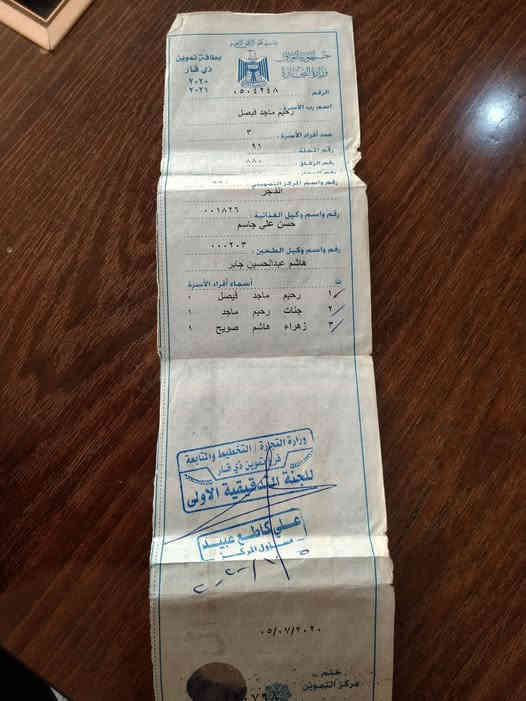 بسم الله الرحمن الرحيم
جمهورية العراق
وزارة التجارة
بطاقة تموين
ذي قار
٢٠٢٠
٢٠٢١
الرقم : ٠٥٠٤٢٤٨
اسم رب الأسرة :
رحيم ماجد فيصل
عدد أفراد الأسرة : ٣
رقم المحلة : ٩١
رقم الزقاق : ٨٨٠
رقم واسم المركز التمويني
الفجر
رقم واسم وكيل الغذائية : ٠٠١٨٢٦
حسن علي جاسم
رقم واسم وكيل الطحين : ٠٠٠٢٠٣
هاشم عبدالحسين جابر
ت أسماء أفراد الأسرة
١ رحيم ماجد فيصل ٠
٢ جنات رحيم ماجد ١
٣ زهراء هاشم صويح ٩
وزارة التجارة / التخطيط والمتابعة
فرع تموين ذي قار
اللجنة التدقيقية الاولى
علي كاطع عبيد
مسؤول المركز
٠٥/٠٧/٢٠٢٠
ختم
مركز التموين